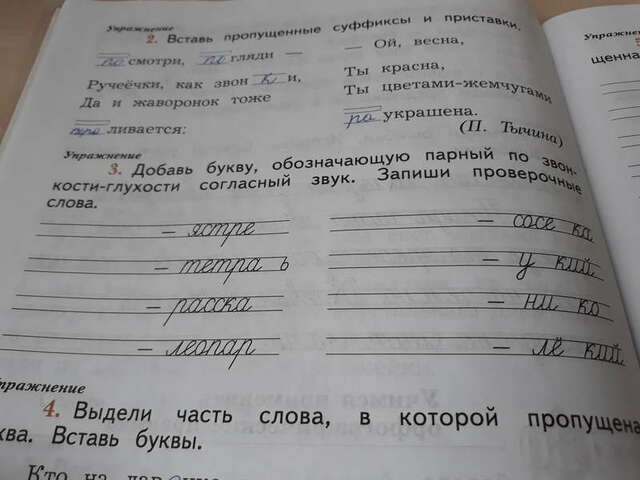 Упражнение
2. Вставь пропущенные суффиксы и приставки.
по смотри, по гляди — — Ой, весна,
Ручеёчки, как звон к и, Ты красна,
Да и жаворонок тоже Ты цветами-жемчугами
ливается: украшена.
(П. Тычина)
Упражнение
3. Добавь букву, обозначающую парный по звон-
кости-глухости согласный звук. Запиши проверочные
слова.
– ястре – сосе ка
– тетра ь – у кий
– расска – ни ко
– леопар – лё кий
Упражнение
4. Выдели часть слова, в которой пропущена
ква. Вставь буквы.
Упражнен
щенна
Учимся применять